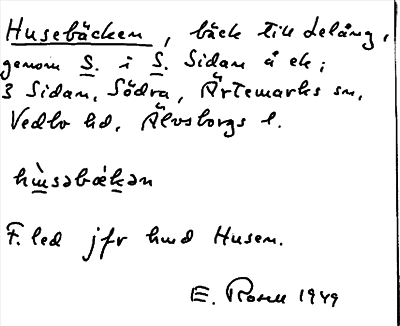 Husebäcken, bäck till Delång,
genom S. i S. Sidan å ek;
3 Sidan, Södra, Ärtemarks sn,
Vedbo hd, Älvsborgs l.
hùsəbækən
F. led jfr hmd Husen.
E. Rosell 1949